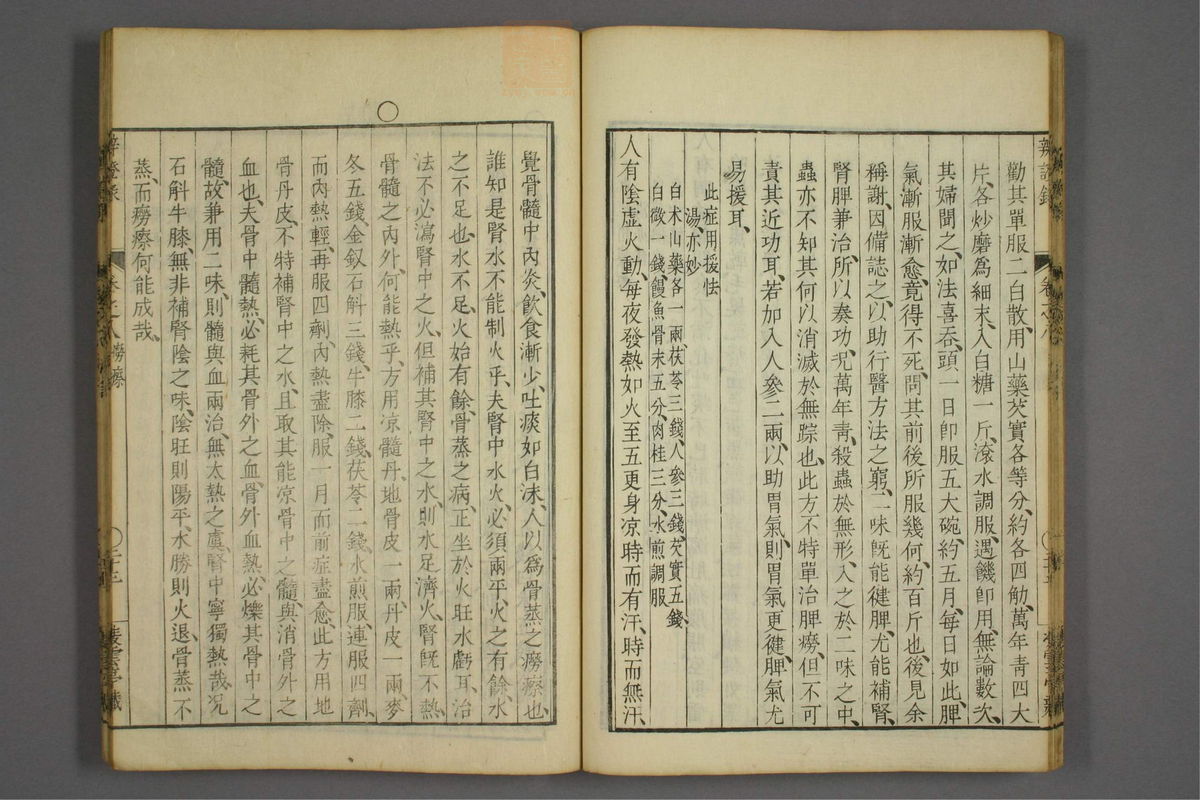 勸其單服二白散、用山藥芡實各等分、約各四觔、萬年靑四大
片、各炒磨爲細末、入白糖一斤、滾水調服、遇饑卽用、無論數次、
其婦聞之、如法喜吞、頭一日卽服五大碗、約五月、每日如此、脾
氣漸服漸愈、竟得不死、問其前後所服幾何、約百斤也、後見余
稱謝、因備誌之、以助行醫方法之窮、二味旣能健脾、尤能補腎、
腎脾兼治、所以奏功、况萬年靑、殺蟲於無形、入之於二味之中、
蟲亦不知其何以消滅於無踪也、此方不特單治脾癆、但不可
責其近功耳、若加入人參二兩、以助胃氣、則胃氣更健、脾氣尤
易援耳、
此症用援怯
湯亦妙
白朮山藥各一兩、茯苓三錢、人參三錢、芡實五錢、
白薇一錢、鰻魚骨末五分、肉桂三分、水煎調服
人有陰虛火動、每夜發熱如火、至五更身凉、時而有汗、時而無汗、
覺骨髓中內炎、飮食漸少、吐痰如白沫、人以爲骨蒸之癆瘵也、
誰知是腎水不能制火乎、夫腎中水火、必須兩平、火之有餘、水
之不足也、水不足、火始有餘、骨蒸之病、正坐於火旺水虧耳、治
法不必瀉腎中之火、但補其腎中之水、則水足濟火、腎旣不熱、
骨髓之內外、何能熱乎、方用凉髓丹、地骨皮一兩、丹皮一兩、麥
冬五錢、金釵石斛三錢、牛膝二錢、茯苓二錢、水煎服、連服四劑、
而內熱輕、再服四劑、內熱盡除、服一月而前症盡愈、此方用地
骨丹皮、不特補腎中之水、且取其能凉骨中之髓、與消骨外之
血也、夫骨中髓熱、必耗其骨外之血、骨外血熱、必爍其骨中之
髓、故兼用二味、則髓與血兩治、無太熱之虞、腎中寧獨熱哉、况
石斛牛膝、無非補腎陰之味、陰旺則陽平、水勝則火退、骨蒸不
蒸、而癆瘵何能成哉、